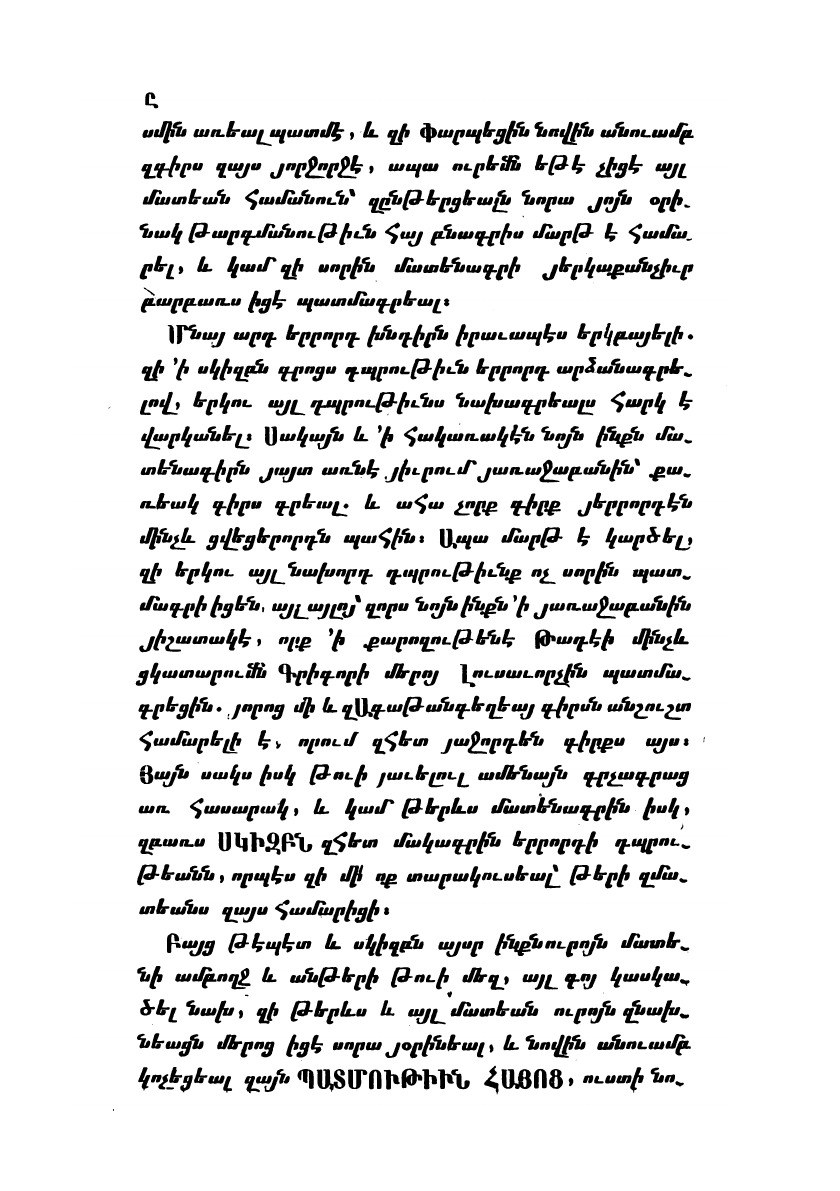 Ը
սմին առեալ պատմէ, և զի Փարպեցին նովին անուամբ
զգիրս զայս յորջորջէ, ապա ուրեմն եթէ չիցէ այլ
մատեան համանուն՝ զընթերցեալն նորա յոյն օրի֊
նակ թարգմանութիւն հայ բնագրիս մարթ է համա֊
րել, և կամ զի սորին մատենագրի յերկաքանչիւր
բարբառս իցէ պատմագրեալ։
Մնայ արդ երրորդ խնդիրն իրաւապէս երկբայելի.
զի ՚ի սկիզբն գրոցս դպրութիւն երրորդ արձանագրե֊
լով, երկու այլ դպրութիւնս նախագրեալս հարկ է
վարկանել։ Սակայն և ՚ի հակառակէն նոյն ինքն մա֊
տենագիրն յայտ առնէ յիւրում յառաջաբանին՝ քա֊
ռեակ գիրս գրեալ. և ահա չորք գիրք յերրորդէն
մինչև ցվեցերորդն պահին։ Ապա մարթ է կարծել,
զի երկու այլ նախորդ դպրութիւնք ոչ սորին պատ֊
մագրի իցեն, այլ այլոյ՝ զորս նոյն ինքն ՚ի յառաջաբանին
յիշատակէ, որք ՚ի քարոզութենէ Թադէի մինչև
ցկատարումն Գրիգորի մերոյ Լուսաւորչին պատմա֊
գրեցին. յորոց մի և զԱգաթանգեղեայ գիրսն անշուշտ
համարելի է, որում զհետ յաջորդեն գիրքս այս։
Յայն սակս իսկ թուի յաւելուլ ամենայն գրչագրաց
առ հասարակ, և կամ թերևս մատենագրին իսկ,
զբառս ՍԿԻԶԲՆ զհետ մակագրին երրորդի դպրու֊
թեանն, որպէս զի մի ոք տարակուսեալ՝ թերի զմա֊
տեանս զայս համարիցի։
Բայց թէպէտ և սկիզբն այսր ինքնուրոյն մատե֊
նի ամբողջ և անթերի թուի մեզ, այլ գոյ կասկա֊
ծել նախ, զի թերևս և այլ մատեան ուրոյն զնախ֊
նեացն մերոց իցէ սորա յօրինեալ, և նովին անուամբ
կոչեցեալ զայն ՊԱՏՄՈՒԹԻՒՆ ՀԱՅՈՑ, ուստի նո֊